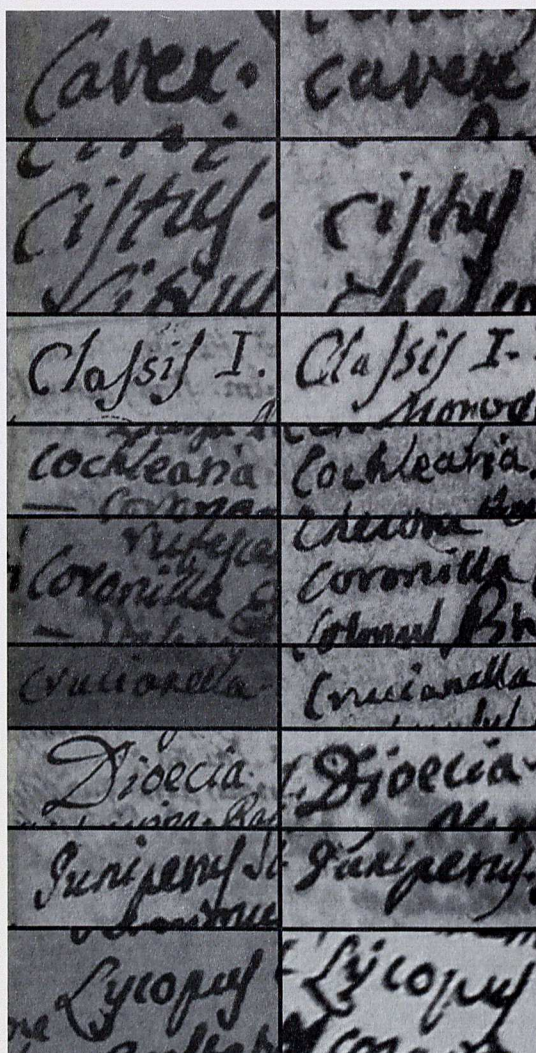 Carex.
carex
Cistus.
Cistus
Classis I.
Classis I.
Monod
Cochlearia
Cochlearia.
Coronilla
Coronilla
Crucianella
Crucianella
Dioecia
Dioecia
Juniperus
Juniperus
Lycopus
Lycopus